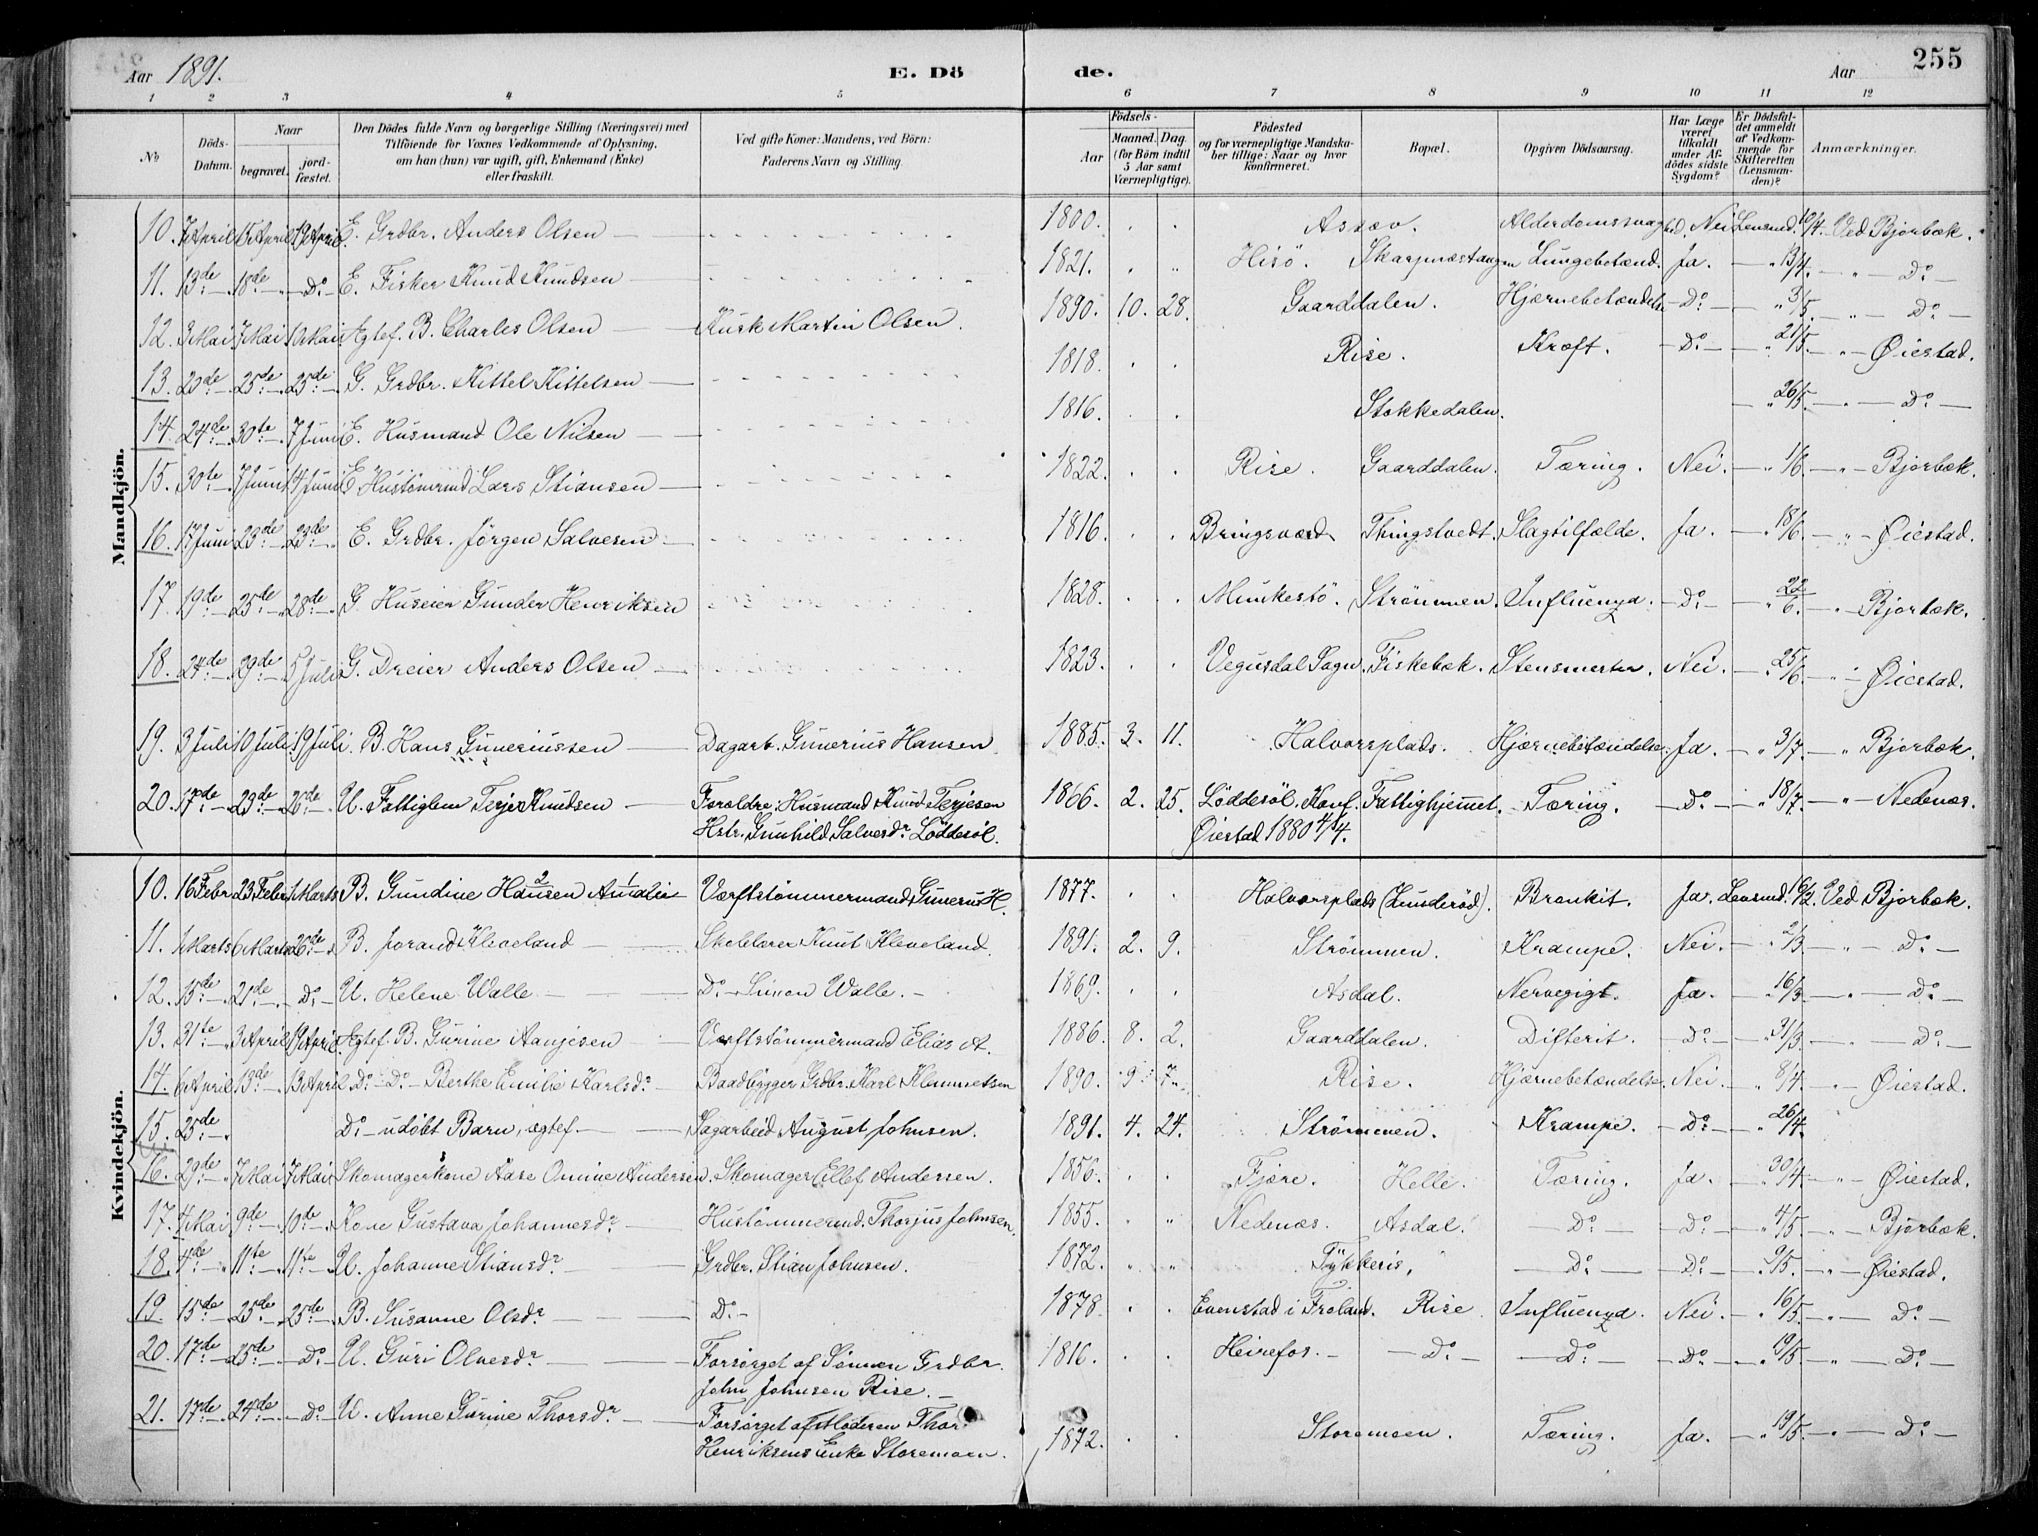 Aar 1891. E. Dö de. Aar 255
1 2 3 4 5 6 7 8 9 10 11 12
No Döds-Datum. Naar begravet. jordfæstet. Den Dödes fulde Navn og borgerlige Stilling (Næringsvei) med Tilföiende for Voxnes Vedkommende af Oplysning, om han (hun) var ugift, gift, Enkemand (Enke) eller fraskilt. Ved gifte Koner: Mandens, ved Börn: Faderens Navn og Stilling. Födsels- Aar Maaned. Dag. (for Börn indtil 5 Aar samt Værnepligtige). Födested og for værnepligtige Mandskaber tillige: Naar og hvor konfirmeret. Bopæl. Opgiven Dödsaarsag. Har Læge været tilkaldt under Afdödes sidste Sygdom? Er Dödsfaldet anmeldt af Vedkommende for Skifteretten (Lensmanden)? Anmærkninger.
Mandkjön.
10. 7 April 15 April 19 April E. Grdbr. Anders Olsen — 1800. Assæv. Alderdomssvaghed. Nei Lensmd. 10/4. Ved Bjorbæk.
11. 13de 18de Do E. Fisker Knud Knudsen — 1821. Hisö. Skarpnæstangen Lungebetænd. Ja. — " 13/4. — " — Do
12. 3 Mai 7 Mai 10 Mai Ægtef. B. Charles Olsen — Kusk Martin Olsen. 1890. 10. 28. Gaarddalen. Hjærnebetændelse — Do — " 3/5. — " — Do —
13. 20de 25de 25de G. Grdbr. Kittel Kittelsen — 1818. Rise. Kræft. — Do — " 21/5. " — Øiestad.
14. 24de 30te 7 Juni E. Husmand Ole Nilsen — 1816. Stokkedalen. — " 26/5. — " — Do —
15. 30te 7 Juni 14 Juni E. Hustömmd Lars Stiansen — 1822. Rise. Gaarddalen. Tæring. Nei. — " 1/6. — " — Bjorbæk.
16. 17 Juni 23de 23de E. Grdbr. Jörgen Salvesen — 1816. Bringsværd Thingstvedt. Slagtilfælde. Ja. — " 18/6. — " — Øiestad.
17. 19de 25de 28de G. Huseier Gunder Henriksen 1828. Munkestö. Strömmen. Influenza. — Do — " 22/6. — " — Bjorbæk.
18. 24de 29de 5 Juli G. Dreier Anders Olsen — 1823. Vegusdal Sogn. Fiskebæk. Stensmerter. Nei. — " 25/6. — " — Øiestad.
19. 3 Juli 10 Juli 19 Juli. B. Hans Guneriussen — Dagarb. Gunerius Hansen 1885. 3. 11. Halvorsplads. Hjærnebetændelse. Ja. — " 3/7. — " Bjorbæk.
20. 17de 23de 26de U. Fattiglem Terje Knudsen — Foræeldre: Husmand Knud Terjesen 1866. 2. 25. Löddesöl. Konf. Fattighjemmet. Tæring. — Do — " 18/7. — " — Nedenæs.
Hstr. Gunhild Salvesdr. Löddesöl. Øiestad 1880 4/4.
Kvindekjön.
10. 16 Febr 23 Febr 1 Marts B. Gundine Hansen Amalie Værftstömmermand Gunerius H. 1877. Halvorsplads (Lunderöd). Bronkit. Ja. Lensmd. 16/2. Ved Bjorbæk.
11. 1 Marts 6 Marts 26de B. Jorand Kleveland — Skolelærer Knut Kleveland. 1891. 2. 9. Strömmen. Krampe. Nei. — " 2/3. — " — Do —
12. 15de 21de Do U. Helene Walle — Do — Simon Walle. — 1869. Asdal. Nervegigt. Ja. — " 16/3 — " — Do —
13. 31te 3 April 19 April. Ægtef. B. Gurine Aanjesen — Værftstömmermand Elias A. 1886. 8. 2. Gaarddalen. Difterit. — Do — " 31/3. — Do —
14. 6 April 13de 13 April Do — Do — Berthe Emilie Karlsdr — Baadbygger Grdbr. Karl Klemmetsen 1890. 9 7 Rise. Hjærnebetændelse. Nei. — " 8/4 — " — Øiestad.
15. 25de Do — udöbt Barn, ægtef. — Sagarbeid August Johnsen. 1891. 4. 24. Strömmen. Krampe. — Do — " 26/4.
16. 29de 7 Mai 7 Mai Skomagerkone Aase Omine Andersen. Skomager Ellef Andersen. 1856. Fjære. Helle. Tæring. Ja. — " 30/4. — " — Øiestad.
17. 4 Mai 9de 10de Kone Gustava Johannesdr — Hustömmermd. Thorjus Johnsen. 1855. Nedenæs. Asdal. Do Do — " 4/5 — " — Bjorbæk.
18. 4de 11te 11te U. Johanne Stiansdr — Grdbr. Stian Johnsen. 1872. Tykkeris. — Do — Do — " 9/5. — " — Øiestad.
19. 15de 25de 25de B. Susanne Olsdr — Do — 1878. Evenstad i Froland. Rise Influenza. Nei. — " 16/5. — " — Do —
20. 17de 25de Do U. Guri Olvesdr — Forsörget af Sönnen Grdbr. 1816. Heirefos. — Do — — Do — — Do — " 19/5. — " — Do —
John Johnsen Rise. —
21. 17de 24de Do U. Anne Gurine Thorsdr — Forsörget af Moderen Thor 1872. Storemoen. Tæring. Ja. — " 19/5. — " — Do —
Henriksens Enke Storemoen.